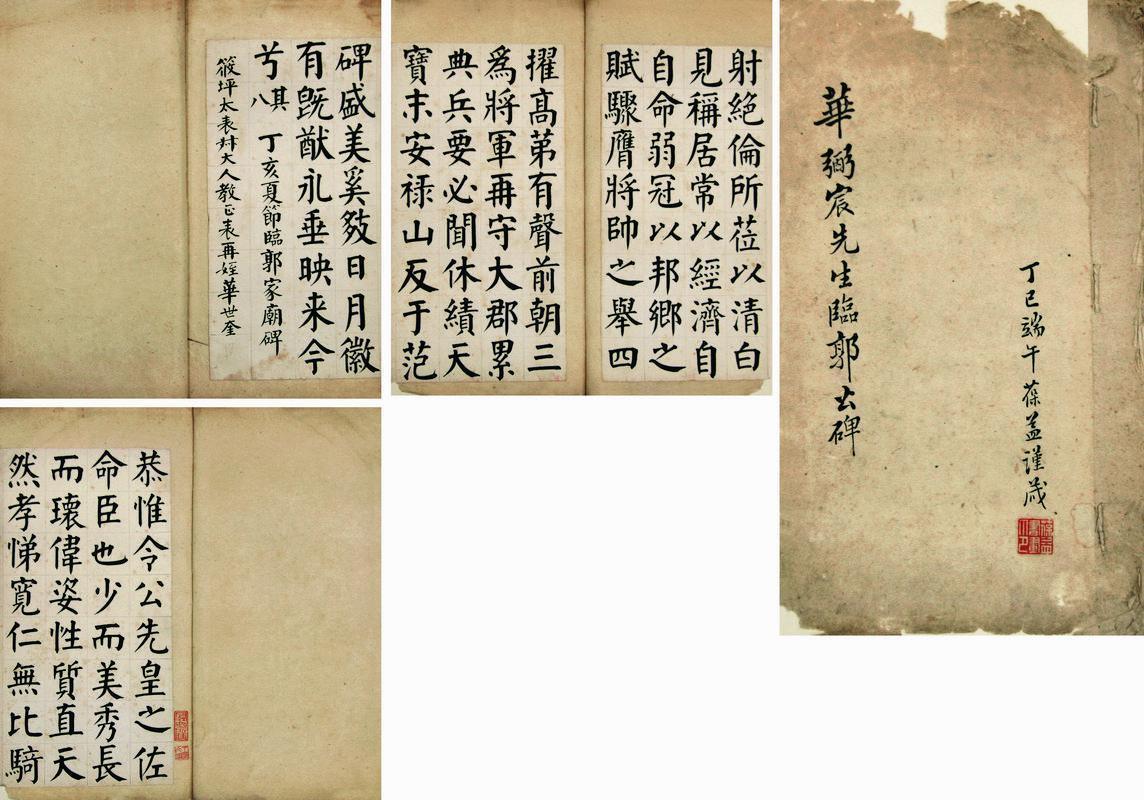 華弼宸先生臨郭公碑
丁巳端午葆益謹藏
恭惟令公先皇之佐
命臣也少而美秀長
而瓌偉姿性質直天
然孝悌寬仁無比騎
射絕倫所莅以清白
見稱居常以經濟自
自命弱冠以邦鄉之
賦驟膺將帥之舉四
擢高苐有聲前朝三
為將軍再守大郡累
典兵要必聞休績天
寶末安祿山反于范
碑盛美奚斁日月徽
有既猷永垂映来今
兮其八
丁亥夏節臨郭家廟碑
筱坪太表叔大人教正表再姪華世奎